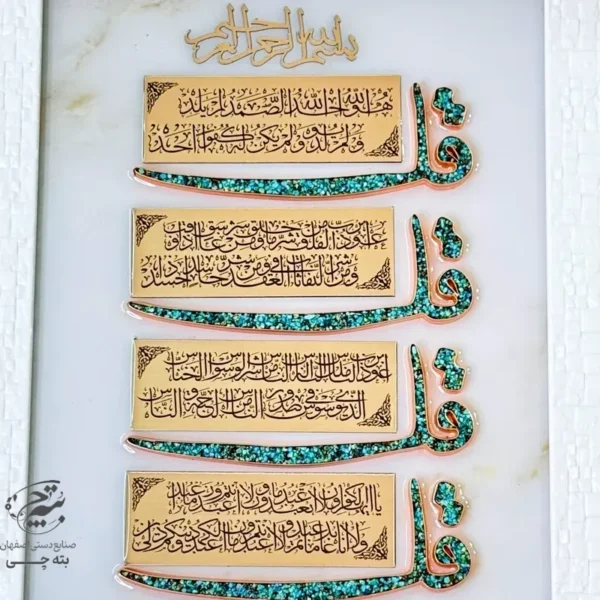 بسم الله الرحمن الرحیم
قل
هو الله احد الله الصمد لم یلد
و لم یولد و لم یکن له کفوا احد
قل
اعوذ برب الفلق من شر ما خلق و من شر غاسق اذا وقب
و من شر النفاثات فی العقد و من شر حاسد اذا حسد
قل
اعوذ برب الناس ملک الناس اله الناس من شر الوسواس الخناس
الذی یوسوس فی صدور الناس من الجنة و الناس
قل
یا ایها الکافرون لا اعبد ما تعبدون و لا انتم عابدون ما اعبد
و لا انا عابد ما عبدتم و لا انتم عابدون ما اعبد لکم دینکم ولی دین
صنایع دستی اصفهان
بته چی